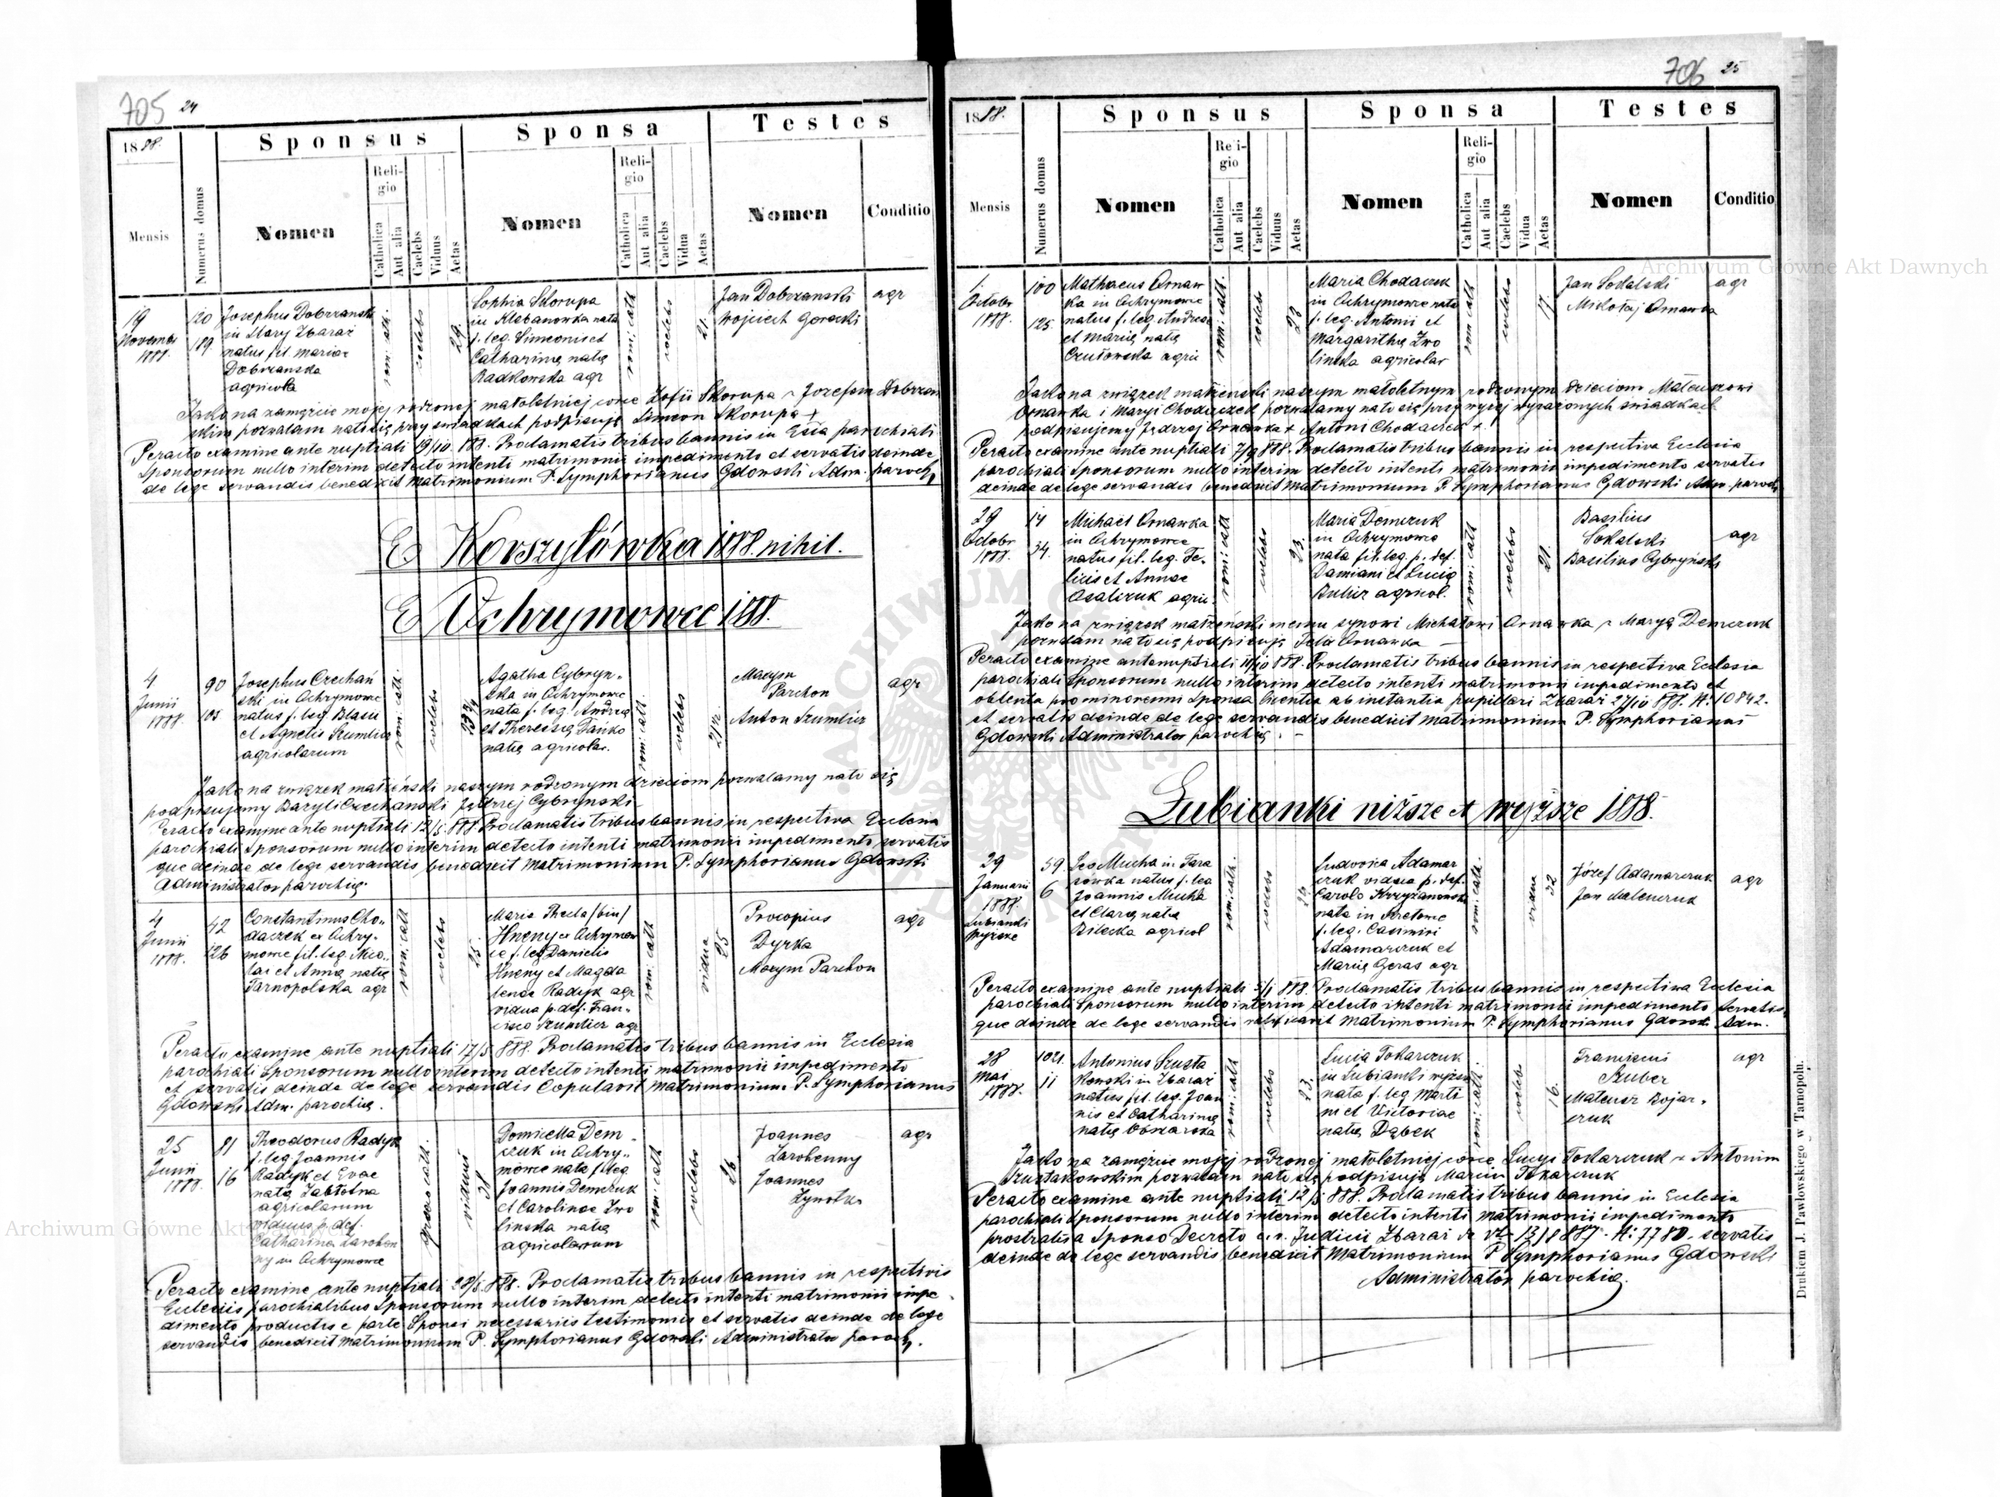 705 24
1888.
Sponsus
Sponsa
Testes
Mensis
Numerus domus
Nomen
Religio
Catholica
Aut alia
Caelebs
Viduus
Aetas
Nomen
Religio
Catholica
Aut alia
Caelebs
Vidua
Aetas
Nomen
Conditio
19 Novembr 1888.
120
189
Josephus Dobrzanski
in Stary Zbaraż
natus fil. Mariae
Dobrzanska
agricola
rom: cath:
caelebs
29.
Sophia Skorupa
in Klebanowka nata
f. leg. Simeonis et
Catharinę natię
Radkowska agr
rom: cath
caelebs
21.
Jan Dobrzanski
Wojciech Gorecki
agr
Jako na zamęźcie mojej rodzonej małoletniej córce Zofii Skorupa z Józefem Dobrzan
skim pozwalam nato się przy świadkach podpisuję Simeon Skorupa +
Peracto examine ante nuptiali 19/10 888. Proclamatis tribus bannis in Ecła parochiali
Sponsorum nullo interim detecto intenti matrimonii impedimento et servatis deinde
de lege servandis benedixit Matrimonium P. Symphorianus Gdowski Adm. paroch,
E Korszylówka 1888. nihil.
E Ochrymowce 1888.
4
Junii
1888.
90
105
Josephus Czechań
ski in Ochrymowce
natus f. leg. Blasii
et Agnetis Szumlicz
agricolarum
rom: cath.
caelebs
Agatha Cybryn-
ska in Ochrymowce
nata f. leg. Andreę
et Theresię Fańko
natię agricolar.
rom: cath
caelebs
Maxym
Parchon
Anton Szumlicz
agr
Jako na związek małżeński naszym rodzonym dzieciom pozwalamy nato się
podpisujemy Bazyli Czechanski Jędrzej Cybrynski
Peracto examine ante nuptiali 12/5 888 Proclamatis tribus bannis in respectiva Ecclesia
parochiali Sponsorum nullo interim detecto intenti matrimonii impedimento servatis
que deinde de lege servandis benedixit Matrimonium P. Symphorianus Gdowski
Administrator parochię.
4
Junii
1888.
42
126
Constantinus Cho-
daczek ex Ochry-
mowce fil. leg. Nico-
lai et Annę natię
Tarnopolska agr
rom: cath
caelebs
25.
Maria Thecla /bin/
Hneny ex Ochrymow
ce f. leg Danielis
Hneny et Magda
lenae Radyk agr
vidua p. def. Fran-
cisco Szumlicz agr
rom: cath
vidua
25
Procopius
Dyrka
Maxym Parchon
agr
Peracto examine ante nuptiali 17/5 888. Proclamatis tribus bannis in Ecclesia
parochiali Sponsorum nullo interim detecto intenti matrimonii impedimento
et servatis deinde de lege servandis Copulavit Matrimonium P. Symphorianus
Gdowski Adm. parochię.
25
Junii
1888.
81
16
Theodorus Radyk
f. leg Joannis
Radyk et Evae
natę Zabłotna
agricolarum
viduus p. def.
Catharina Zaroben
ny in Ochrymowce
graeco cath.
viduus
38
Domicella Dem-
czuk in Ochry-
mowce nata f. leg
Joannis Demczuk
et Carolinae Zwo
linska natię
agricolarum
rom: cath
caelebs
26
Joannes
Zarobenny
Joannes
agr
Peracto examine ante nuptiali 28/5 888. Proclamatis tribus bannis in respectivis
Ecclesiis parochialibus Sponsorum nullo interim detecto intenti matrimonii impe-
dimento productis e parte Sponsi necessariis testimoniis et servatis deinde de lege
servandis benedixit Matrimonium P. Symphorianus Gdowski Administrator paroch,.
706 25
1888.
Sponsus
Sponsa
Testes
Mensis
Numerus domus
Nomen
Religio
Catholica
Aut alia
Caelebs
Viduus
Aetas
Nomen
Religio
Catholica
Aut alia
Caelebs
Vidua
Aetas
Nomen
Conditio
1.
Octobr
1888.
100
125.
Mathaeus Ornaw
ka in Ochrymowce
natus f. leg. Andreae
et Marię natię
agric
rom: cath.
caelebs
23
Maria Chodaczek
in Ochrymowce nata
f. leg. Antonii et
Margarithę Zwo
linska agricolar
rom: cath
caelebs
17.
Jan Sokalski
Mikołaj Ornawka
agr
Jako na związek małżeński naszym małoletnym rodzonym dzieciom Mateuszowi
Ornawka i Maryi Chodaczek pozwalamy nato się przy wyżej wyrażonych świadkach
podpisujemy Jędrzej Ornawka + Antoni Chodaczek +
Peracto examine ante nuptiali 7/9 888. Proclamatis tribus bannis in respectiva Ecclesia
parochiali Sponsorum nullo interim detecto intenti matrimonii impedimento servatis
deinde de lege servandis benedixit Matrimonium P. Symphorianus Gdowski Adm. paroch,
29
Octobr
1888.
14
34.
Michael Ornawka
in Ochrymowce
natus fil. leg. Fe-
licis et Annae
Osalczuk agric.
rom: cath
caelebs
23.
Maria Demczuk
in Ochrymowce
nata fil. leg. p. def.
Damiani et Lucię
Bubir agricol.
rom: cath
caelebs
21.
Basilius
Sokalski
Basilius Cybryński
agr
Jako na związek małżeński memu synowi Michałowi Ornawka z Maryą Demczuk
pozwalam nato się podpisuję Felix Ornawka
Peracto examine antenuptiali 11/10 888. Proclamatis tribus bannis in respectiva Ecclesia
parochiali Sponsorum nullo interim detecto intenti matrimonii impedimento et
obtenta pro minorenni Sponsa licentia ab instantia pupillari Zbaraż 27/10 888. N: 10842.
et servatis deinde de lege servandis benedixit Matrimonium P. Symphorianus
Gdowski Administrator parochię.
Łubianki niższe et wyższe 1888.
29
Januarii
1888.
Łubianki
Wyższe
59
6
Leo Mucha in Tara
sowka natus f. leg
Joannis Mucha
et Clarę natię
Bilecka agricol
rom: cath.
caelebs
Ludovica Adamar
czuk vidua p. def.
Carolo Krzyżanowski
nata in Kretowce
f. leg. Casimiri
Adamarczuk et
Marię Geras agr
rom: cath.
vidua
32
Józef Adamarczuk
Jan
agr
Peracto examine ante nuptiali 5/1 888. Proclamatis tribus bannis in respectiva Ecclesia
parochiali Sponsorum nullo interim detecto intenti matrimonii impedimento servatis
que deinde de lege servandis ratificavit Matrimonium P. Symphorianus Gdowski Adm.
28
Mai
1888.
1021.
11
Antonius Szusta
kowski in Zbaraż
natus fil. leg. Joan
nis et Catharinę
natię
rom: cath
caelebs
23.
Lucia Tokarczuk
in Łubianki wyższe
nata f. leg Marti
ni et Victoriae
natię Dąbek
rom: cath.
caelebs
16.
Franciscus
Szuber
Mateusz Bojar-
czuk
agr
Jako na zamęźcie mojej rodzonej małoletniej córce Lucyi Tokarczuk z Antonim
Szustakowskim pozwalam nato się podpisuję Marcin Tokarczuk
Peracto examine ante nuptiali 12/5 888. Proclamatis tribus bannis in Ecclesia
parochiali Sponsorum nullo interim detecto intenti Matrimonii impedimento
prostratis a Sponso Decreto c. r. Judicii Zbaraż 13/8 887. N: 7780. servatis
deinde de lege servandis benedixit Matrimonium P Symphorianus Gdowski
Administrator parochię.
Drukiem J. Pawłowskiego w Tarnopolu.
Archiwum Główne Akt Dawnych
Archiwum Główne Akt Dawnych